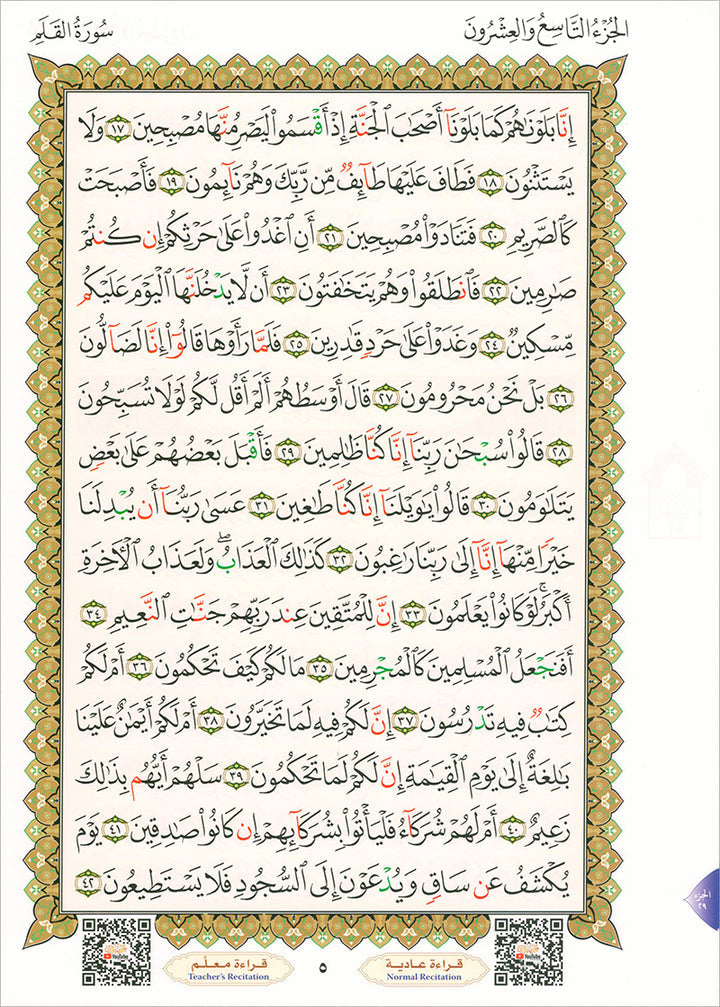 الجُزْءُ التَّاسِعُ وَالعِشْرُونَ
سُورَةُ القَلَمِ
إِنَّا بَلَوْنَٰهُمْ كَمَا بَلَوْنَآ أَصْحَٰبَ ٱلْجَنَّةِ إِذْ أَقْسَمُوا۟ لَيَصْرِمُنَّهَا مُصْبِحِينَ ١٧ وَلَا
يَسْتَثْنُونَ ١٨ فَطَافَ عَلَيْهَا طَآئِفٌ مِّن رَّبِّكَ وَهُمْ نَآئِمُونَ ١٩ فَأَصْبَحَتْ
كَٱلصَّرِيمِ ٢٠ فَتَنَادَوْا۟ مُصْبِحِينَ ٢١ أَنِ ٱغْدُوا۟ عَلَىٰ حَرْثِكُمْ إِن كُنتُمْ
صَٰرِمِينَ ٢٢ فَٱنطَلَقُوا۟ وَهُمْ يَتَخَٰفَتُونَ ٢٣ أَن لَّا يَدْخُلَنَّهَا ٱلْيَوْمَ عَلَيْكُم
مِّسْكِينٌ ٢٤ وَغَدَوْا۟ عَلَىٰ حَرْدٍ قَٰدِرِينَ ٢٥ فَلَمَّا رَأَوْهَا قَالُوٓا۟ إِنَّا لَضَآلُّونَ
٢٦ بَلْ نَحْنُ مَحْرُومُونَ ٢٧ قَالَ أَوْسَطُهُمْ أَلَمْ أَقُل لَّكُمْ لَوْلَا تُسَبِّحُونَ
٢٨ قَالُوا۟ سُبْحَٰنَ رَبِّنَآ إِنَّا كُنَّا ظَٰلِمِينَ ٢٩ فَأَقْبَلَ بَعْضُهُمْ عَلَىٰ بَعْضٍ
يَتَلَٰوَمُونَ ٣٠ قَالُوا۟ يَٰوَيْلَنَآ إِنَّا كُنَّا طَٰغِينَ ٣١ عَسَىٰ رَبُّنَآ أَن يُبْدِلَنَا
خَيْرًا مِّنْهَآ إِنَّآ إِلَىٰ رَبِّنَا رَٰغِبُونَ ٣٢ كَذَٰلِكَ ٱلْعَذَابُ ۖ وَلَعَذَابُ ٱلْءَاخِرَةِ
أَكْبَرُ ۚ لَوْ كَانُوا۟ يَعْلَمُونَ ٣٣ إِنَّ لِلْمُتَّقِينَ عِندَ رَبِّهِمْ جَنَّٰتِ ٱلنَّعِيمِ ٣٤
أَفَنَجْعَلُ ٱلْمُسْلِمِينَ كَٱلْمُجْرِمِينَ ٣٥ مَا لَكُمْ كَيْفَ تَحْكُمُونَ ٣٦ أَمْ لَكُمْ
كِتَٰبٌ فِيهِ تَدْرُسُونَ ٣٧ إِنَّ لَكُمْ فِيهِ لَمَا تَخَيَّرُونَ ٣٨ أَمْ لَكُمْ أَيْمَٰنٌ عَلَيْنَا
بَٰلِغَةٌ إِلَىٰ يَوْمِ ٱلْقِيَٰمَةِ إِنَّ لَكُمْ لَمَا تَحْكُمُونَ ٣٩ سَلْهُمْ أَيُّهُم بِذَٰلِكَ
زَعِيمٌ ٤٠ أَمْ لَهُمْ شُرَكَآءُ فَلْيَأْتُوا۟ بِشُرَكَآئِهِمْ إِن كَانُوا۟ صَٰدِقِينَ ٤١ يَوْمَ
يُكْشَفُ عَن سَاقٍ وَيُدْعَوْنَ إِلَى ٱلسُّجُودِ فَلَا يَسْتَطِيعُونَ ٤٢
الجزء
٢٩
YouTube
قراءة عادية
Normal Recitation
٥
قراءة معلّم
Teacher's Recitation
YouTube